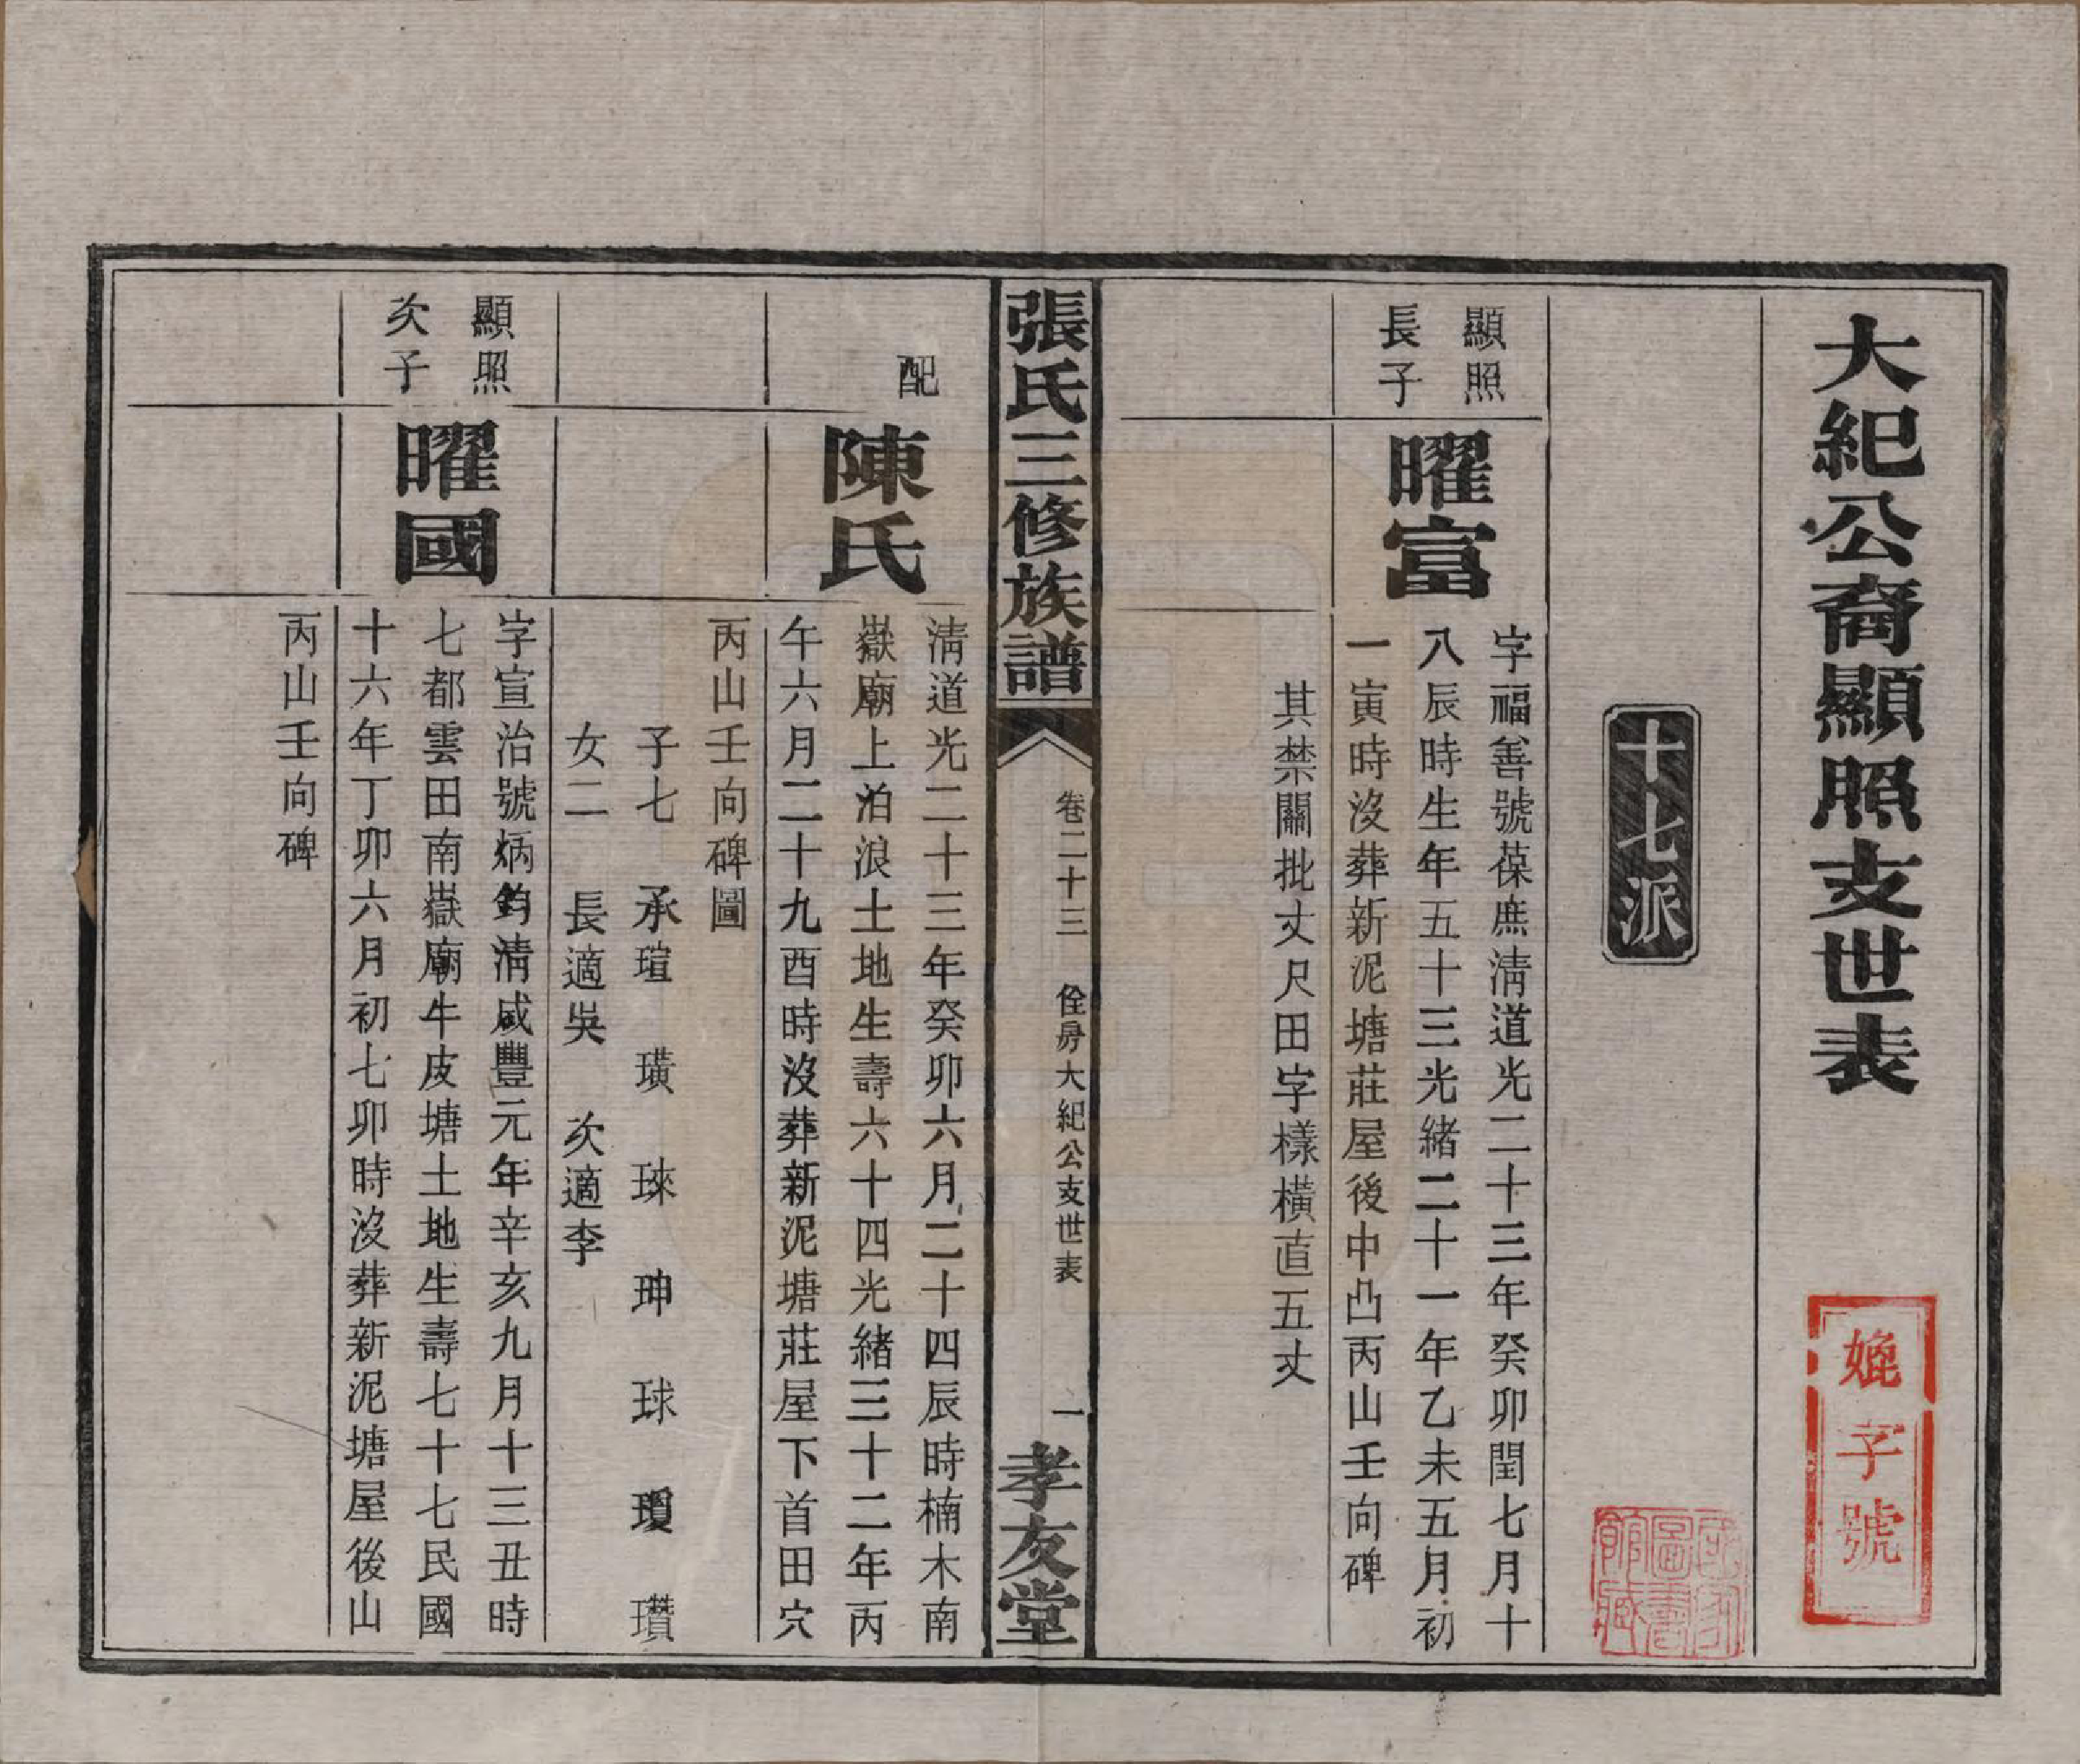 大紀公裔顯照支世表
媲字號
十七派
顯照
長子
曜富
字福善號葆庶淸道光二十三年癸卯閏七月十
八辰時生年五十三光緖二十一年乙未五月初
一寅時沒葬新泥塘莊屋後中凸丙山壬向碑
其禁關批丈尺田字樣橫直五丈
張氏三修族譜
卷二十三
佺房大紀公支世表
一
孝友堂
配
陳氏
淸道光二十三年癸卯六月二十四辰時楠木南
嶽廟上泊浪土地生壽六十四光緖三十二年丙
午六月二十九酉時沒葬新泥塘莊屋下首田穴
丙山壬向碑圖
子七　承瑄　璜　琜　珅　球　瓊　瓚
女二　長適吳　次適李
顯照
次子
曜國
字宣治號炳鈞淸咸豐元年辛亥九月十三丑時
七都雲田南嶽廟牛皮塘土地生壽七十七民國
十六年丁卯六月初七卯時沒葬新泥塘屋後山
丙山壬向碑
國家
圖書
館藏